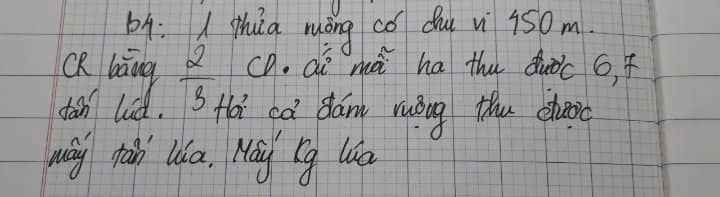 b4: 1 thửa ruộng có chu vi 450 m.
CR bằng 2/3 CD. cứ mỗi ha thu được 6,7
tấn lúa. Hỏi cả đám ruộng thu được
mấy tấn lúa. Mấy kg lúa